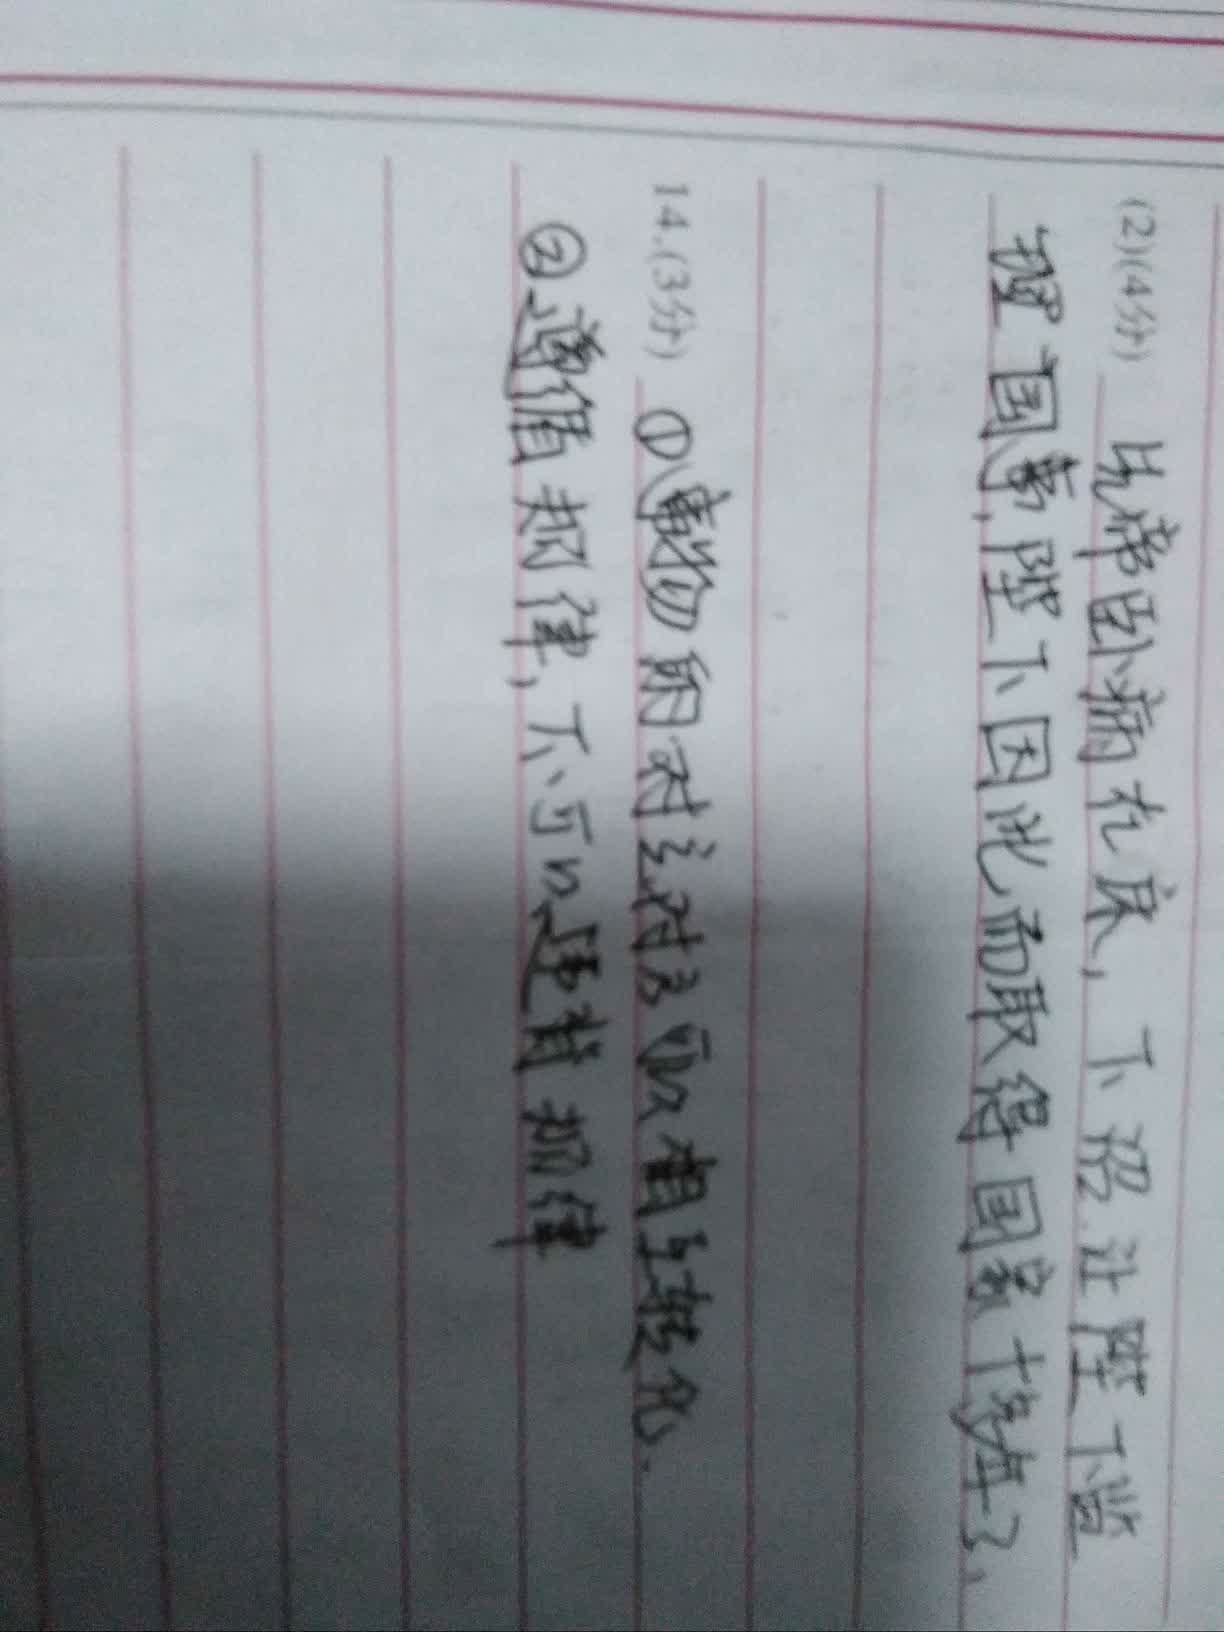 (2)(4分) 先帝卧病在床，下诏让陛下监
理国事，陛下因此而取得国家十多年了，
14.(3分) ①事物用对立，对立可以相互转化．
②遵循规律，不可以违背规律